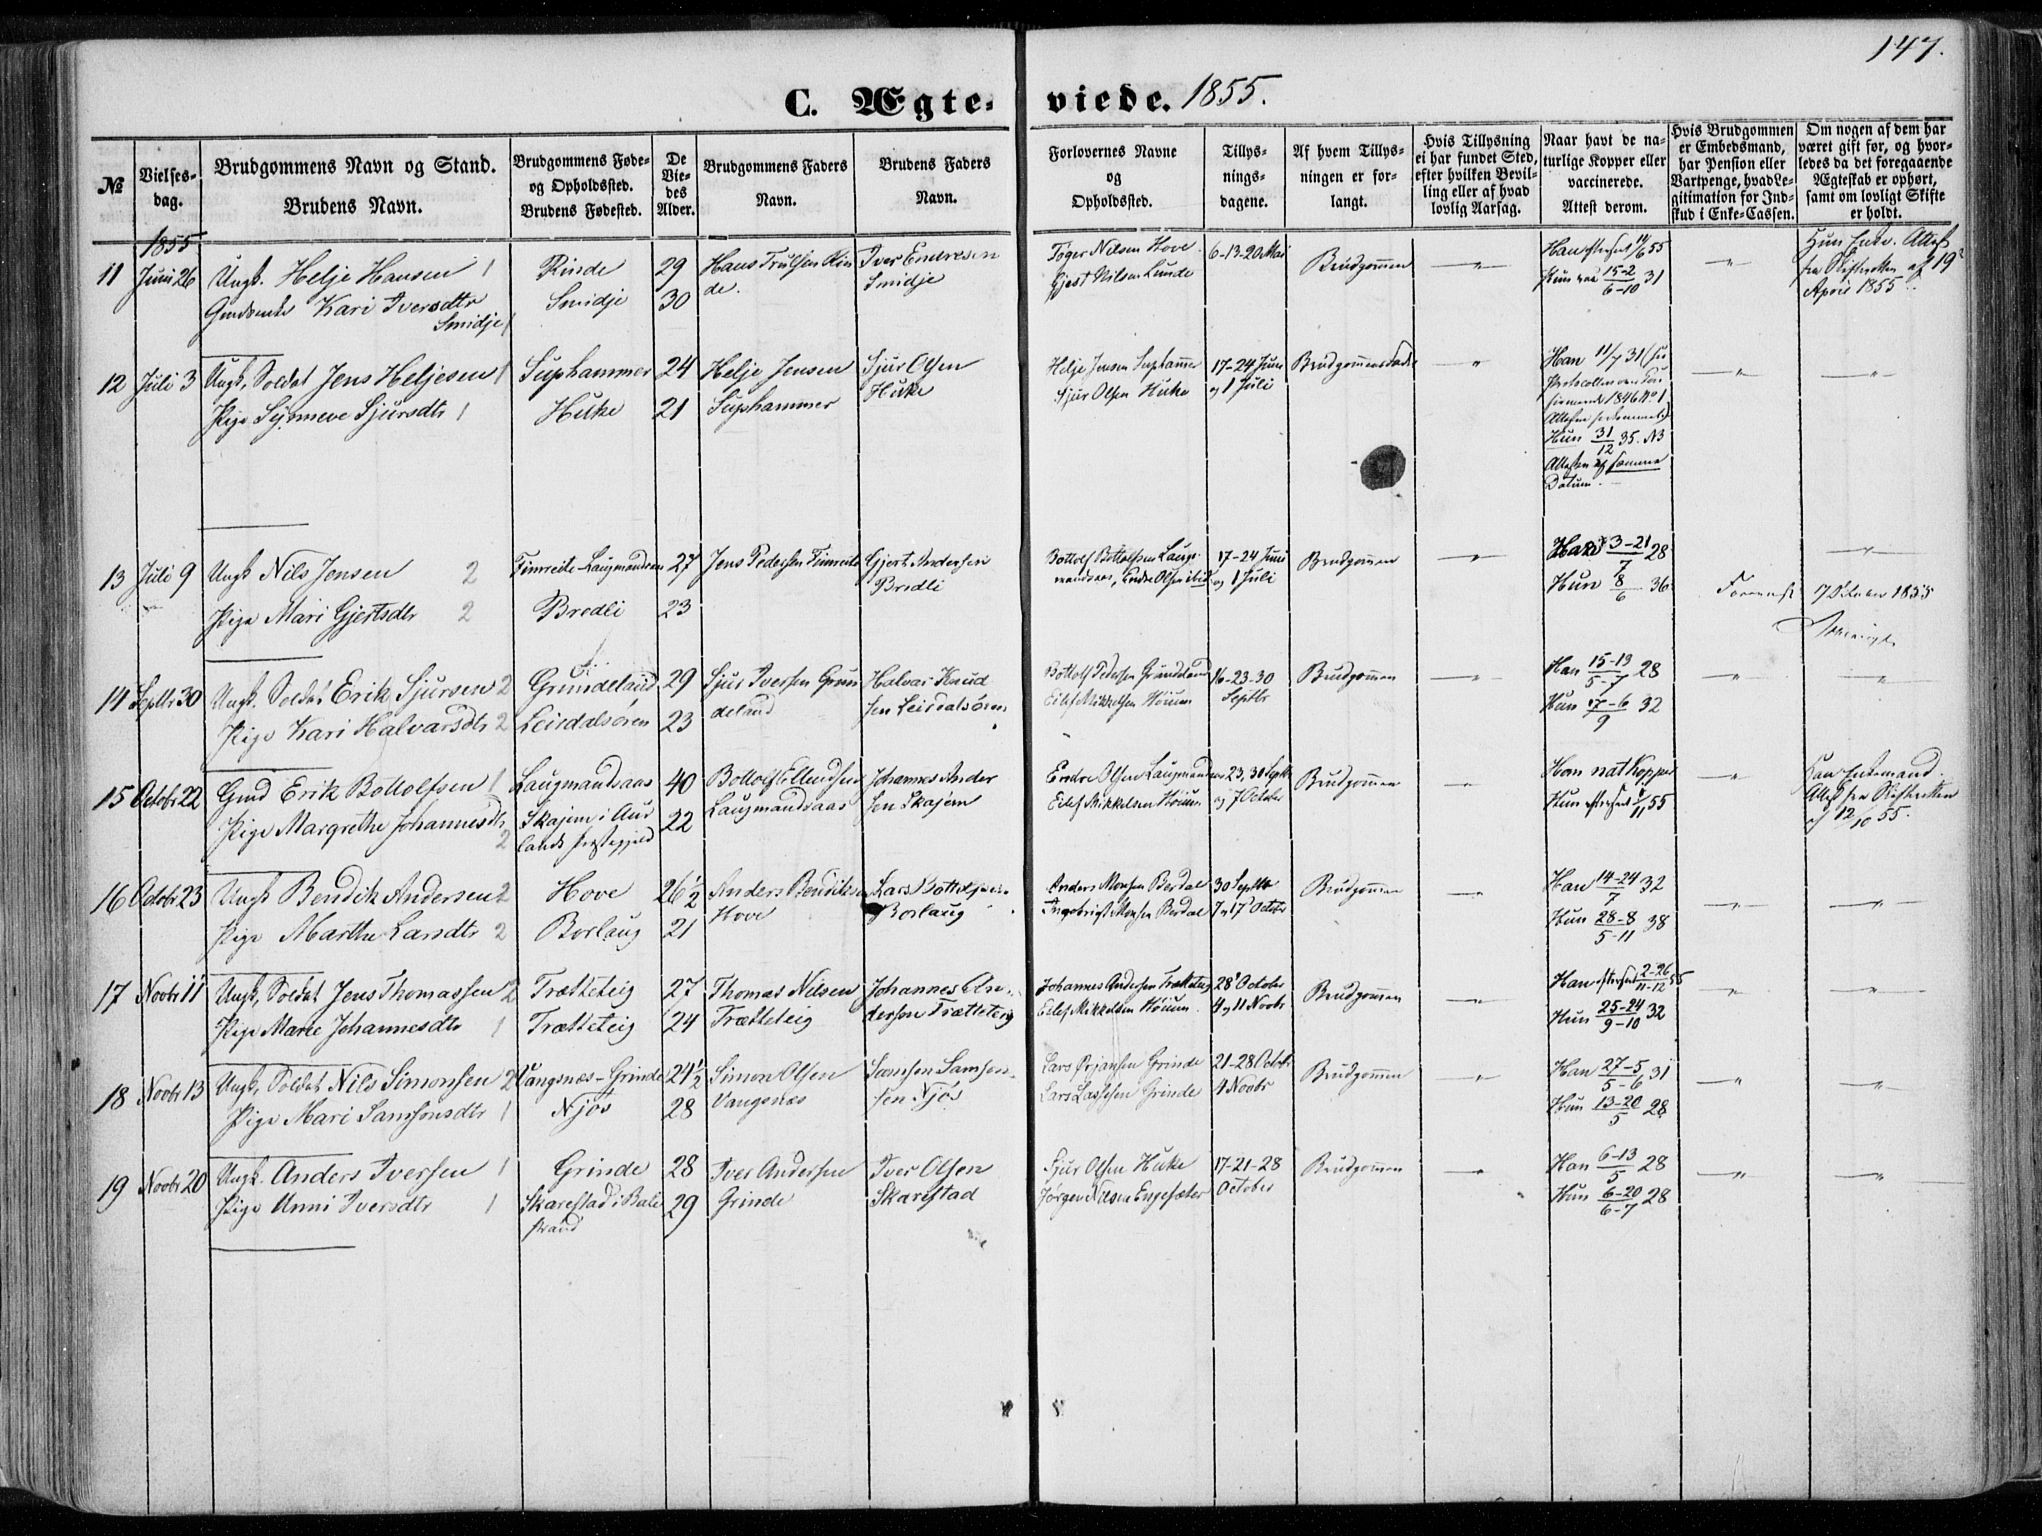 147.
C. Ægte- viede. 1855.
№
Vielses-
dag.
Brudgommens Navn og Stand.
Brudens Navn.
Brudgommens Føde-
og Opholdssted.
Brudens Fødested.
De
Vie-
des
Alder.
Brudgommens Faders
Navn.
Brudens Faders
Navn.
Forlovernes Navne
og
Opholdssted.
Tillys-
nings-
dagene.
Af hvem Tillys-
ningen er for-
langt.
Hvis Tillysning
ei har fundet Sted,
efter hvilken Bevil-
ling eller af hvad
lovlig Aarsag.
Naar havt de na-
turlige Kopper eller
vaccinerede.
Attest derom.
Hvis Brudgommen
er Embedsmand,
har Pension eller
Vartpenge, hvad Le-
gitimation for Ind-
skud i Enke-Cassen.
Om nogen af dem har
været gift før, og hvor-
ledes da det foregaaende
Ægteskab er ophørt,
samt om lovligt Skifte
er holdt.
1855
11 Juni 26 Ungk. Helje Hansen 1 Rinde 29 Hans Trulsen Rin Iver Endresen
Kari Iversdtr Smidje 30 de. Smidje
Smidje 1
Tøger Nilsen Hove 6-13-20 Mai Brudgommen Han 11/6 55 Hun Enke. Attest
Gjest Nilsen Lunde Hun 15-2/6-10 31 fra Skifteretten af 19
April 1855
12 Juli 3 Ungk. Soldat Jens Heljesen 1 Suphammer 24 Helje Jensen Sjur Olsen
Pige Synneve Sjursdtr 1 Huke 21 Suphammer Huke
Helje Jensen Suphammer 17-24 Juni Brudgommens Fader Han 11/7 31
Sjur Olsen Huke og 1 Juli
1846 No 1
Hun 31/12 35. N3
Attesten af samme
Datum.
13 Juli 9 Ungk Nils Jensen 2 Timreite-Laugmandsaas 27 Jens Pedersen Timreite Gjert Andersen
Pige Mari Gjertsdtr 2 Bredli 23 Bredli
Bottolf Bottolfsen Laug- 17-24 Juni Brudgommen Han 3-21/7 28
mandsaas, Endre Olsen ibid og 1 Juli Hun 8/6 36
7 October 1855
14 Septbr 30 Ungk. Soldat Erik Sjursen 2 Grundeland 29 Sjur Iversen Grun Halvar Knud
Pige Kari Halvarsdtr 2 Leirdalsøren 23 deland sen Leirdalsøren
Bottolf Pedersen Grundeland 16-23-30 Brudgommen Han 15-13/5-7 28
Eilef Mikkelsen Höium Septbr Hun 17-6/9 32
15 Octobr 22 Gmd Erik Bottolfsen 1 Laugmandsaas 40 Bottolf Ellendsen Johannes Ander
Pige Margrethe Johannesdtr Skajem i Aur 22 Laugmandsaas sen Skajem
2 lands Præstegjeld
Endre Olsen Laugmandsaas 23, 30 Septbr Brudgommen Han nat Kopper Han Enkemand.
Eilef Mikkelsen Höium og 7 October Hun 55 Attest fra Skifteretten
af 12/10 55.
16 Octobr 23 Ungk Bendik Andersen 2 Hove 26½ Anders Bendiksen Lars Bottolfsen
Pige Marthe Larsdtr 2 Borlaug 21 Hove Borlaug
Anders Monsen Berdal 30 Septbr Brudgommen Han 14-24/7 32
Ingebrigt Monsen Berdal 7 og 17 Octobr Hun 28-8/5-11 38
17 Novbr 11 Ungk. Soldat Jens Thomassen 2 Trætteteig 27 Thomas Nilsen Johannes An-
Pige Marie Johannesdtr 1 Trætteteig 24 Trætteteig dersen Trætteteig
Johannes Andersen Trætteteig 28 October Brudgommen Han 2-26/11-12 55
Eilef Mikkelsen Höium 4 og 11 Novbr Hun 25-24/9-10 32
18 Novbr 13 Ungk. Soldat Nils Simonsen 2 Vangsnæs-Grinde 24½ Simon Olsen Samson Samson
Pige Mari Samsonsdtr 1 Njøs 28 Vangsnæs sen Njøs
Lars Ørjansen Grinde 21-28 Octobr Brudgommen Han 27-5/5-6 31
Lars Lassesen Grinde 4 Novbr Hun 13-20/5 28
19 Novbr 20 Ungk. Anders Iversen 1 Grinde 28 Iver Andersen Iver Olsen
Pige Unni Iversdtr 1 Skarestad i Bale 29 Grinde Skarestad
strand
Sjur Olsen Huke 17-21-28 Brudgommen Han 6-13/5 28
Jørgen Nilsen Engesæter October Hun 6-20/6-7 28